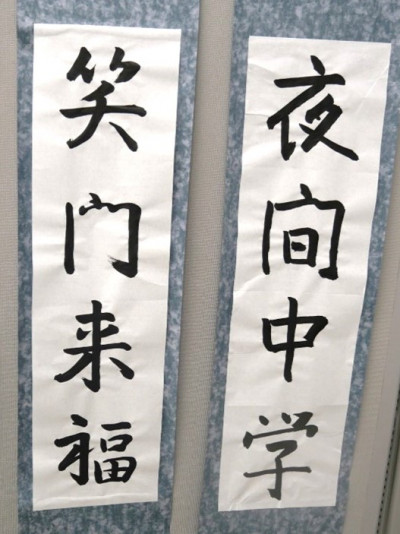 夜間中学
笑門来福